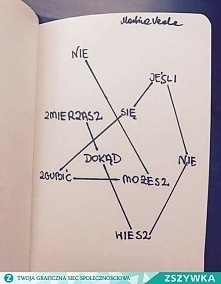 NIE
JEŚLI
SIĘ
ZMIERZASZ
DOKĄD
NIE
ZGUBIĆ
MOŻESZ
WIESZ
Z TWOJA GRAFICZNA SIEĆ SPOŁECZNOŚCIOWA
ZSZYWKA